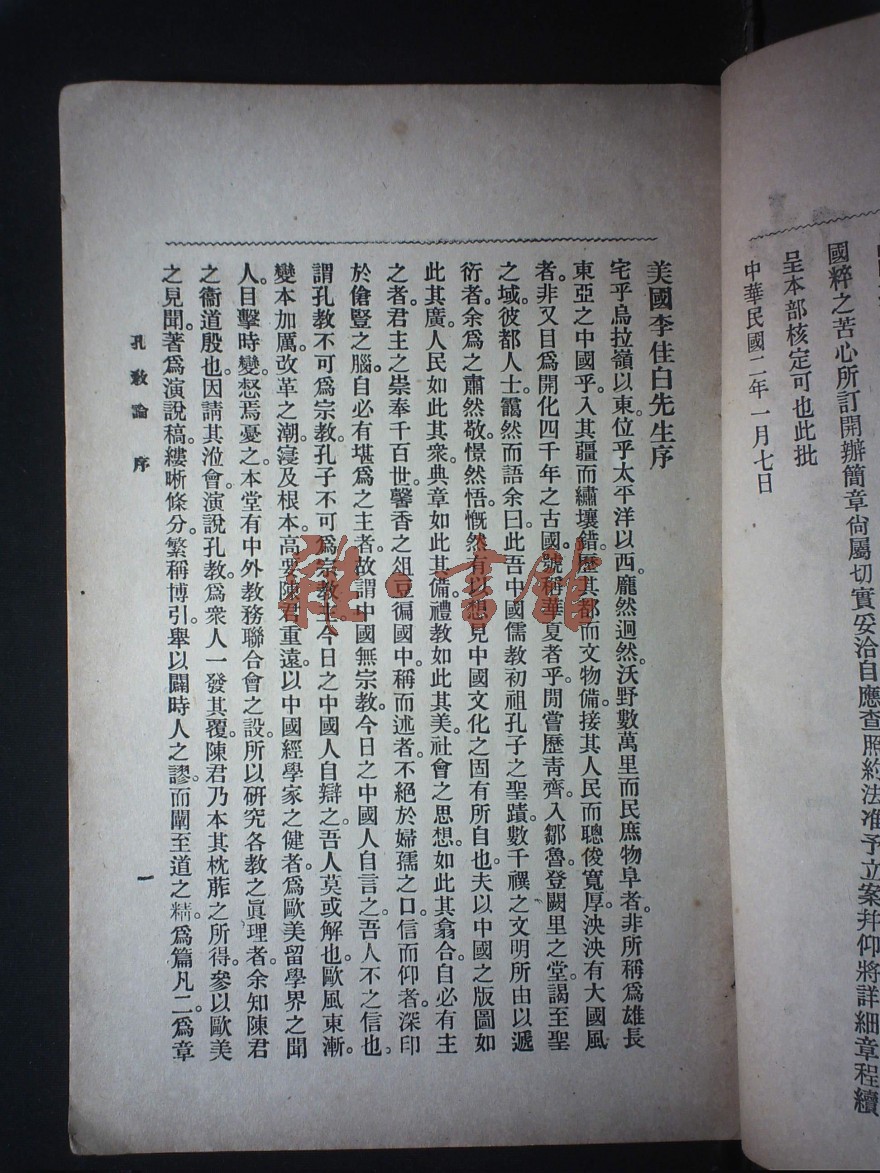 國粹之苦心所訂開辦簡章尙屬切實妥洽自應查照約法准予立案幷仰將詳細章程續
呈本部核定可也此批
中華民國二年一月七日
美國李佳白先生序
宅乎烏拉嶺以東。位乎太平洋以西。龐然迥然。沃野數萬里而民庶物阜者。非所稱爲雄長
東亞之中國乎。入其疆而繡壤錯。歷其都而文物備。接其人民而聰俊寬厚。泱泱有大國風
者。非又目爲開化四千年之古國。號稱華夏者乎。閒嘗歷靑齊。入鄒魯。登闕里之堂。謁至聖
之域。彼都人士靄然而語余曰。此吾中國儒教初祖孔子之聖蹟。數千禩之文明所由以遞
衍者。余爲之肅然敬。憬然悟。慨然有以想見中國文化之固有所自也。夫以中國之版圖如
此其廣。人民如此其衆。典章如此其備。禮教如此其美。社會之思想。如此其翕合。自必有主
之者。君主之崇奉千百世。馨香之俎豆徧國中。稱而述者。不絕於婦孺之口。信而仰者。深印
於傖豎之腦。自必有堪爲之主者。故謂中國無宗教。今日之中國人自言之。吾人不之信也。
謂孔教不可爲宗教。孔子不可爲宗教主。今日之中國人自辯之。吾人莫或解也。歐風東漸。
變本加厲。改革之潮。寖及根本。高要陳君重遠。以中國經學家之健者。爲歐美留學界之聞
人。目擊時變。惄焉憂之。本堂有中外教務聯合會之設。所以研究各教之眞理者。余知陳君
之衞道殷也。因請其涖會。演說孔教。爲衆人一發其覆。陳君乃本其枕葄之所得。參以歐美
之見聞。著爲演說稿。縷晰條分。繁稱博引。舉以闢時人之謬。而闡至道之精。爲篇凡二。爲章
孔教論 序
一
雜·書館